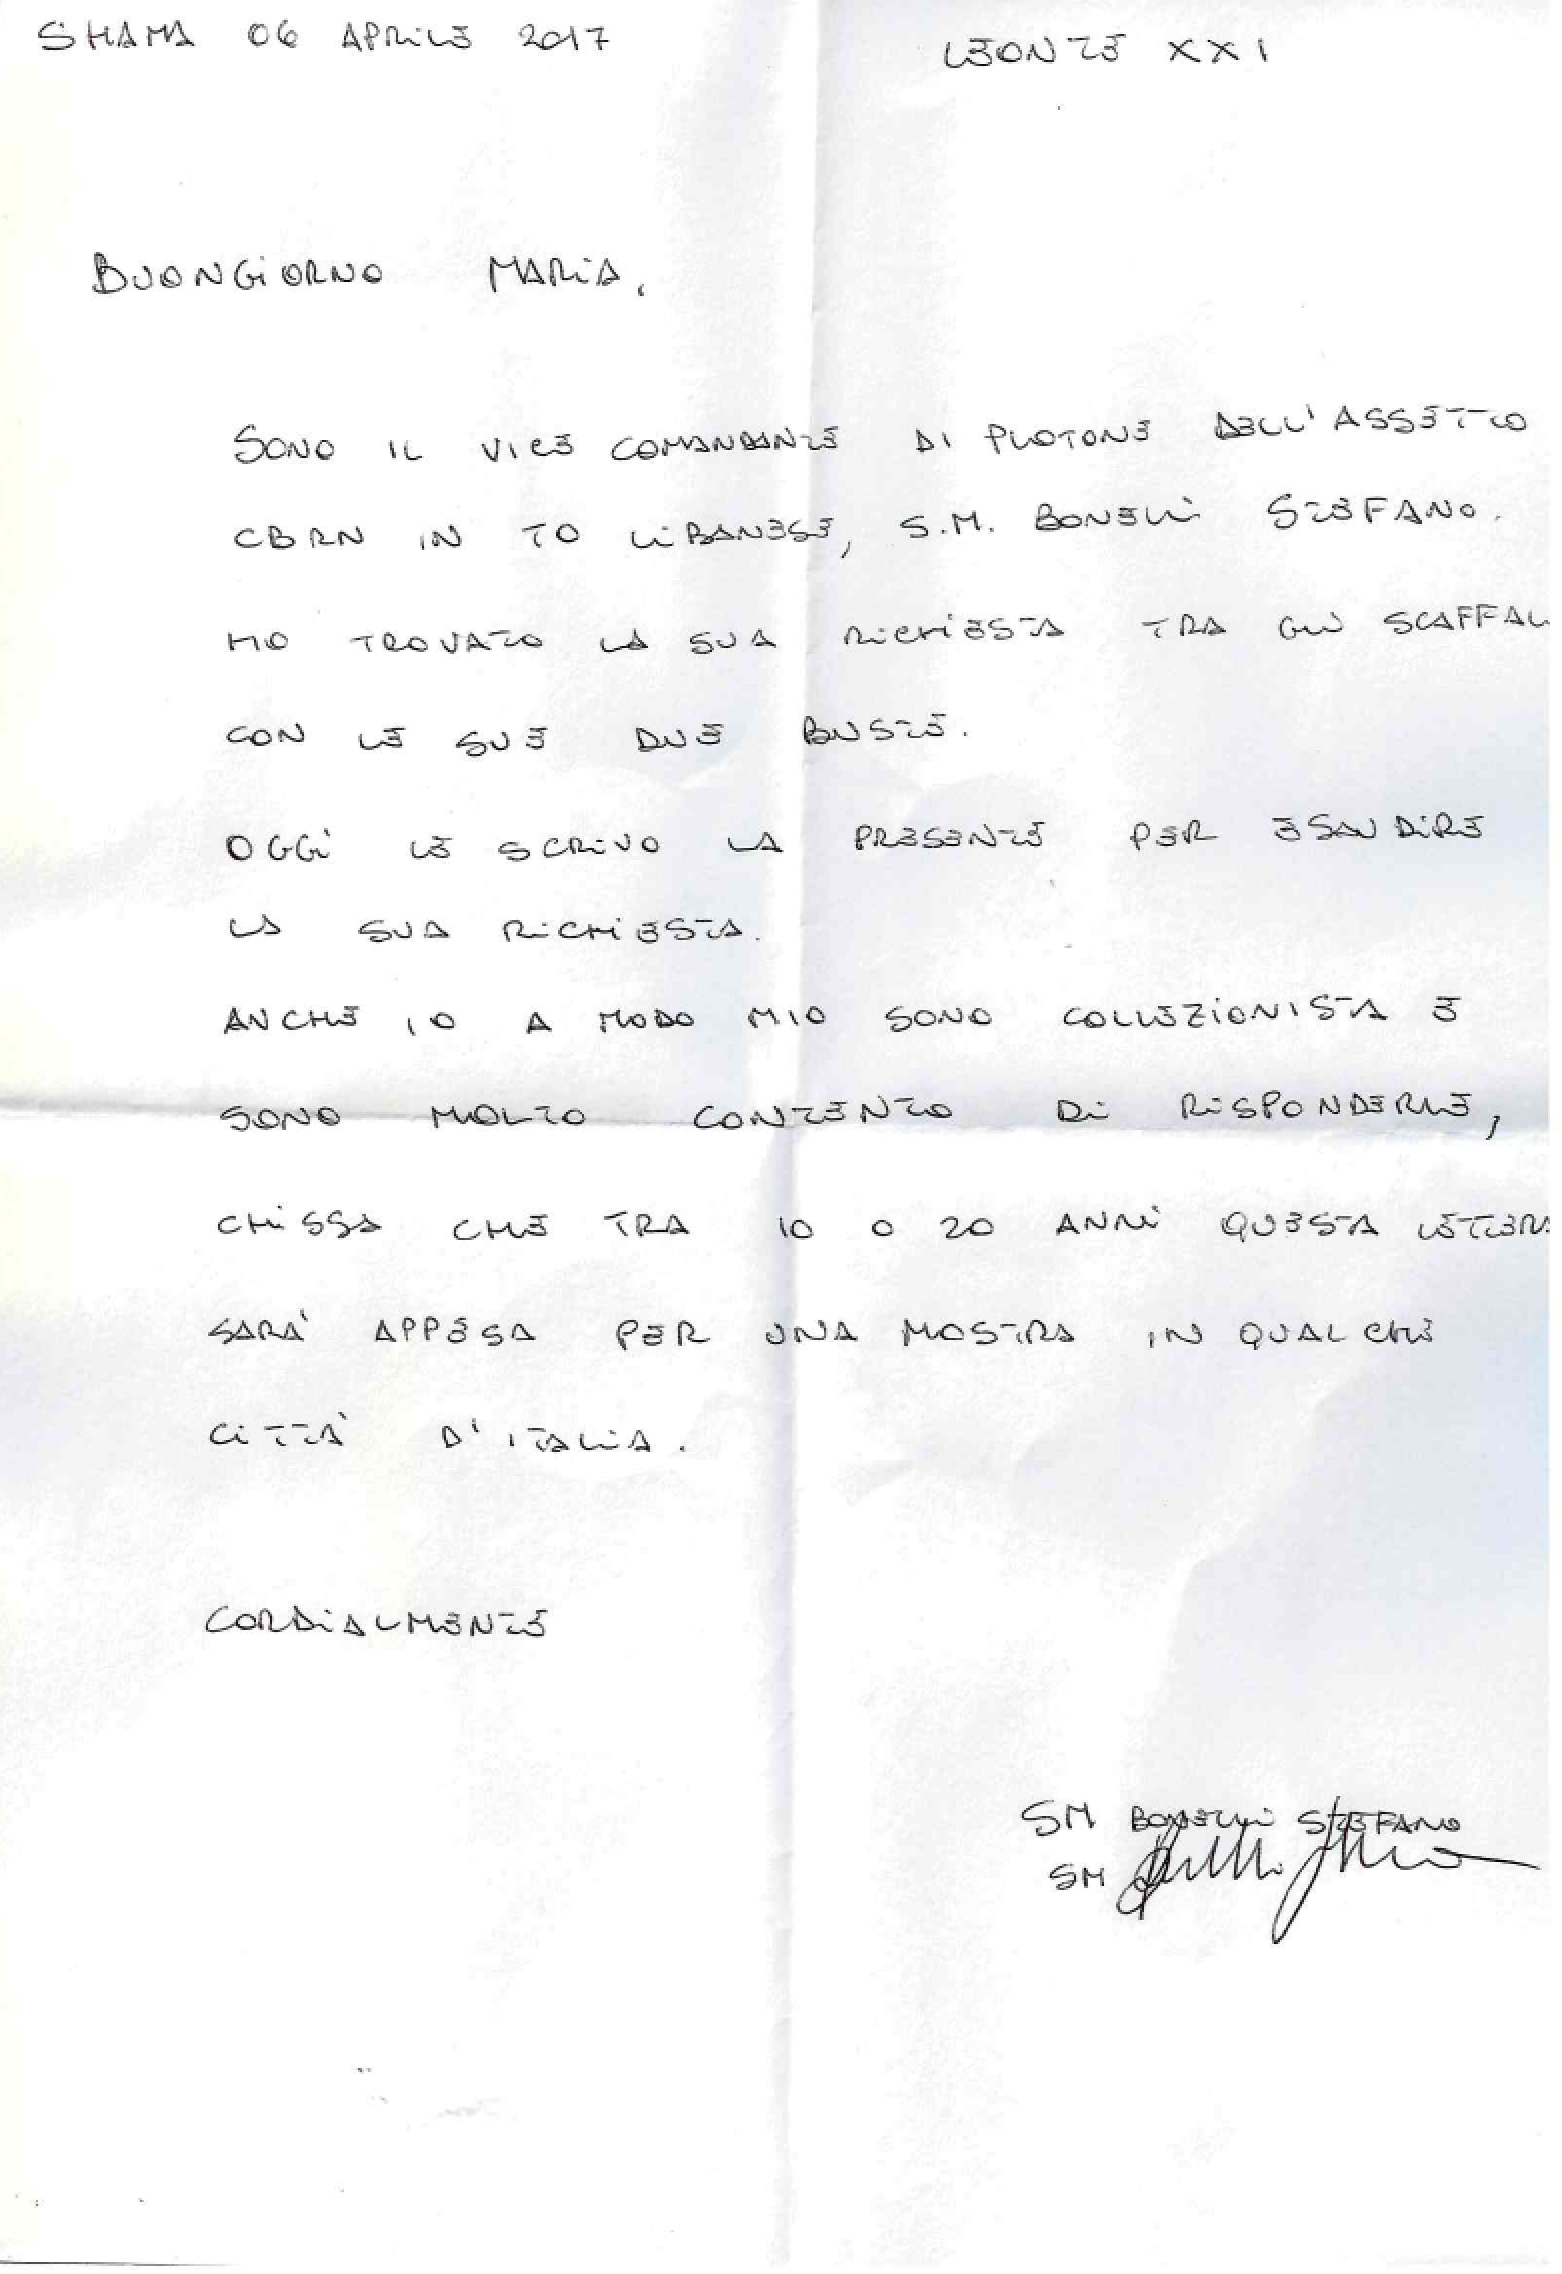 SHAMA 06 APRILE 2017
LEONTE XXI
BUONGIORNO MARIA,
SONO IL VICE COMANDANTE DI PLOTONE DELL'ASSETTO
CBRN IN TO LIBANESE, S.M. BONELLI STEFANO.
HO TROVATO LA SUA RICHIESTA TRA GLI SCAFFAL
CON LE SUE DUE BUSTE.
OGGI LE SCRIVO LA PRESENTE PER ESAUDIRE
LA SUA RICHIESTA.
ANCHE IO A MODO MIO SONO COLLEZIONISTA E
SONO MOLTO CONTENTO DI RISPONDERLE,
CHISSA CHE TRA 10 O 20 ANNI QUESTA LETTER
SARA' APPESA PER UNA MOSTRA IN QUALCHE
CITTA' D'ITALIA.
CORDIALMENTE
SM BONELLI STEFANO
SM